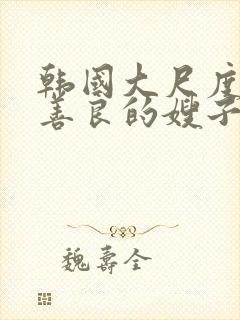 韩国大尺度
善良的嫂子
魏寿全